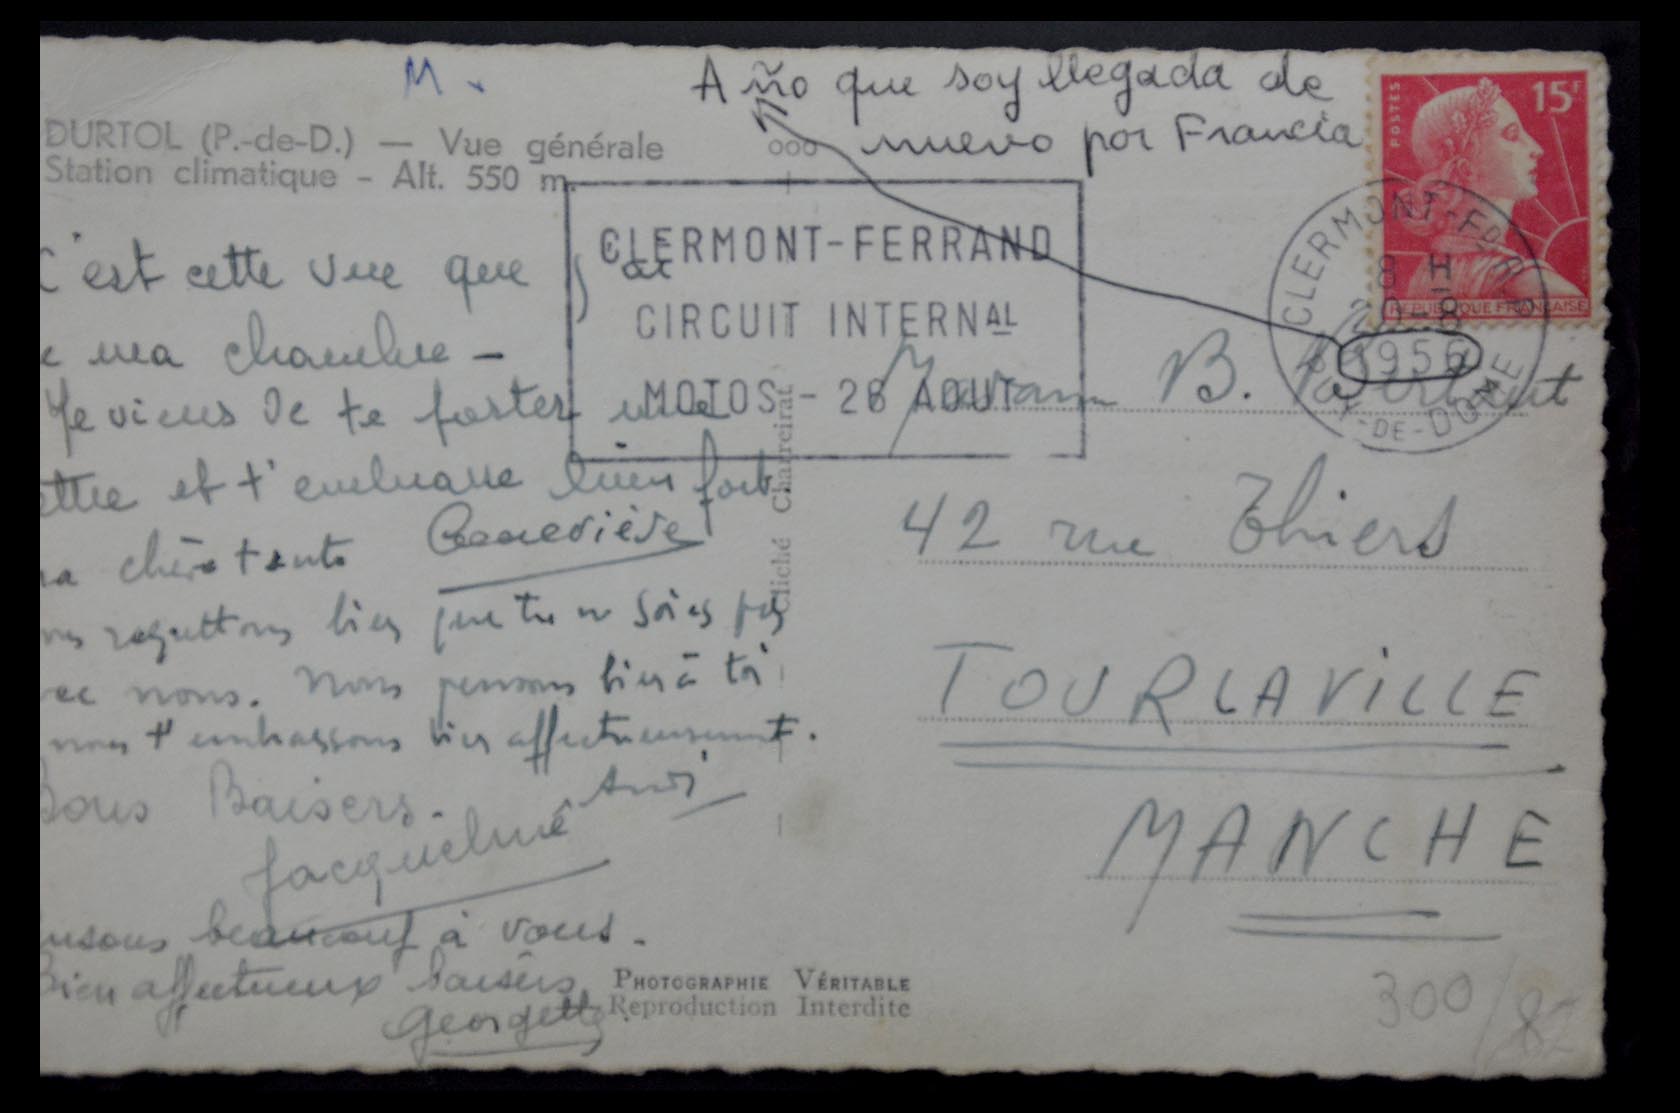 M.
Año que soy llegada de
nuevo por Francia
DURTOL (P.-de-D.) — Vue générale
Station climatique - Alt. 550 m.
000
POSTES
15F
REPUBLIQUE FRANÇAISE
CLERMONT-FERRAND
CIRCUIT INTERNAL
MOTOS - 26 AOUT
CLERMONT-FD
8 H
20-8
1956
PUY-DE-DOME
C'est cette vue que
ma chambre -
Je viens de te poster une
ettre et t'embrasse bien fort
chère tante Geneviève
regrettons bien que tu ne sois pas
vec nous. Nous pensons bien à toi
nous t'embrassons bien affectueusement.
Bons Baisers.
Jacqueline
ensons beaucoup à vous.
Bien affectueux baisers
Georgette
Cliché Charcirat
PHOTOGRAPHIE VÉRITABLE
Reproduction Interdite
Madame B.
42 rue Thiers
TOURLAVILLE
MANCHE
300/82